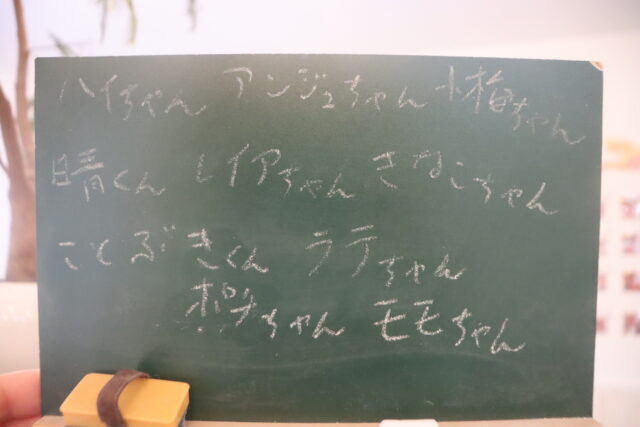 ハイちゃん アンジュちゃん 小梅ちゃん
晴くん レイアちゃん きなこちゃん
ことぶきくん ラテちゃん
ポチちゃん モモちゃん